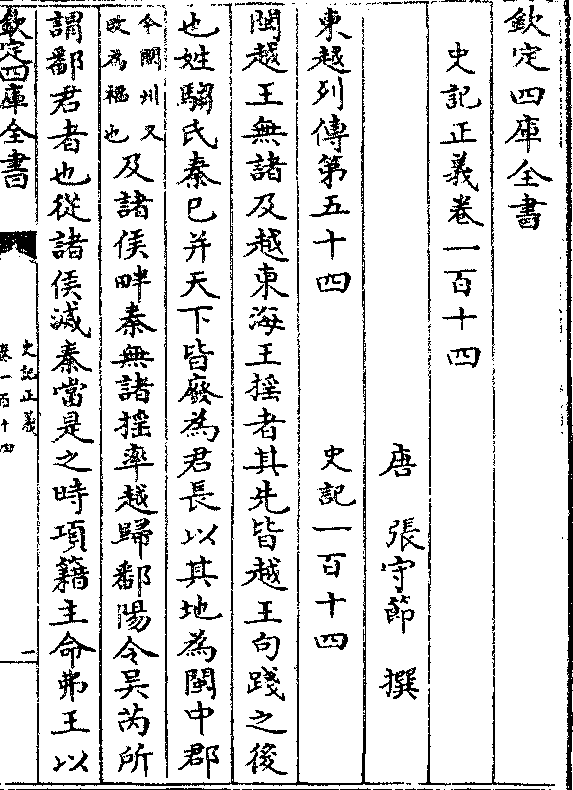 欽定四庫全書
史記正義卷一百十四
唐 張守節 撰
東越列傳第五十四 史記一百十四
閩越王無諸及越東海王揺者其先皆越王句踐之後
也姓騶氏秦已并天下皆廢為君長以其地為閩中郡
今閩州又
改為福也
及諸侯畔秦無諸揺率越歸鄱陽令吴芮所
謂鄱君者也從諸侯滅秦當是之時項籍主命弗王以
欽定四庫全書
史記正義
卷一百十四
一